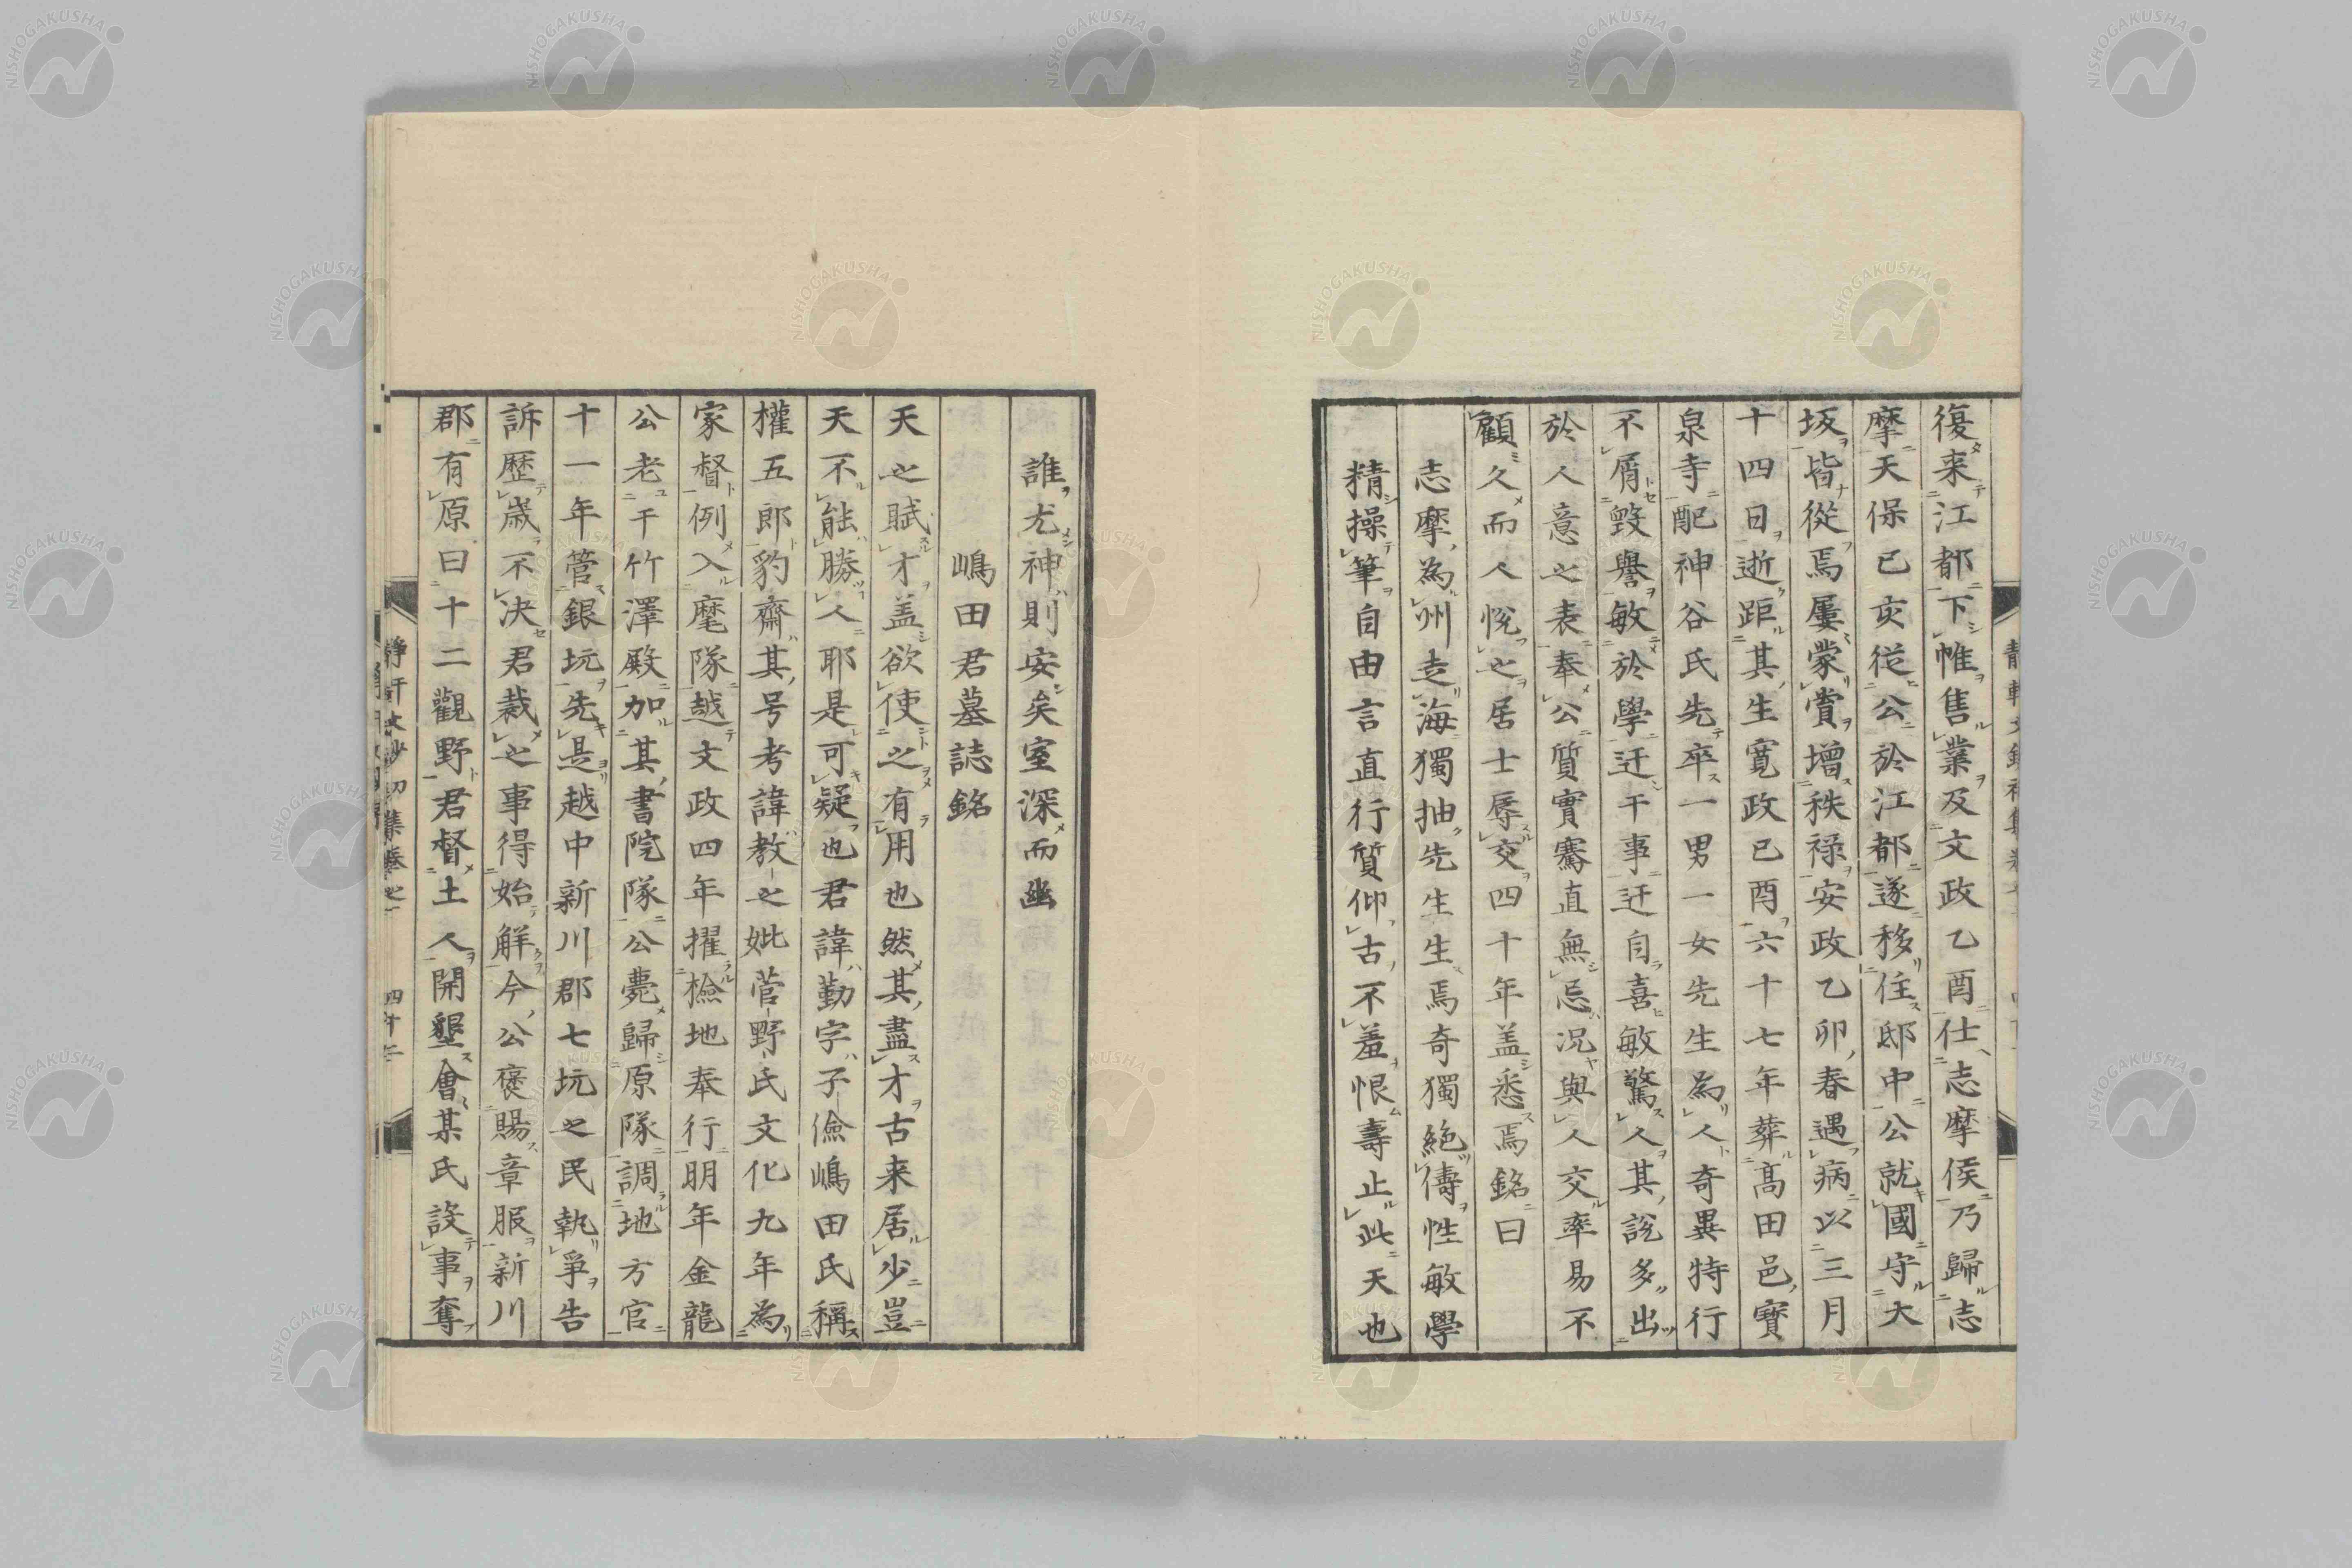 復来江都下帷售業及文政乙酉仕志摩侯乃歸志
摩天保己亥從公於江都遂移住邸中公就國守大
坂皆從焉屢蒙賞增秩禄安政乙卯春遇病以三月
十四日逝距其生寛政己酉六十七年葬高田邑寳
泉寺配神谷氏先卒一男一女先生為人奇異特行
不屑毀譽敏於學迂干事迂自喜敏驚人其説多出
於人意之表奉公質實騫直無忌況與人交率易不
顧久而人悅之居士辱交四十年盖悉焉銘曰
志摩為州走海獨抽先生生焉奇獨絕儔性敏學
精操筆自由言直行質仰古不羞恨壽止此天也
誰尤神則安矣室深而幽
嶋田君墓誌銘
天之賦才盖欲使之有用也然其盡才古来居少豈
天不能勝人耶是可疑也君諱勤字子儉嶋田氏稱
權五郎豹齋其号考諱教之妣菅野氏文化九年為
家督例入麾隊越文政四年擢檢地奉行明年金龍
公老干竹澤殿加其書院隊公薨歸原隊調地方官
十一年管銀坑先是越中新川郡七坑之民執爭告
訴歷歳不决君裁之事得始解今公褒賜章服新川
郡有原曰十二觀野君督土人開墾會某氏設事奪
静軒文鈔初集巻之一 四十二